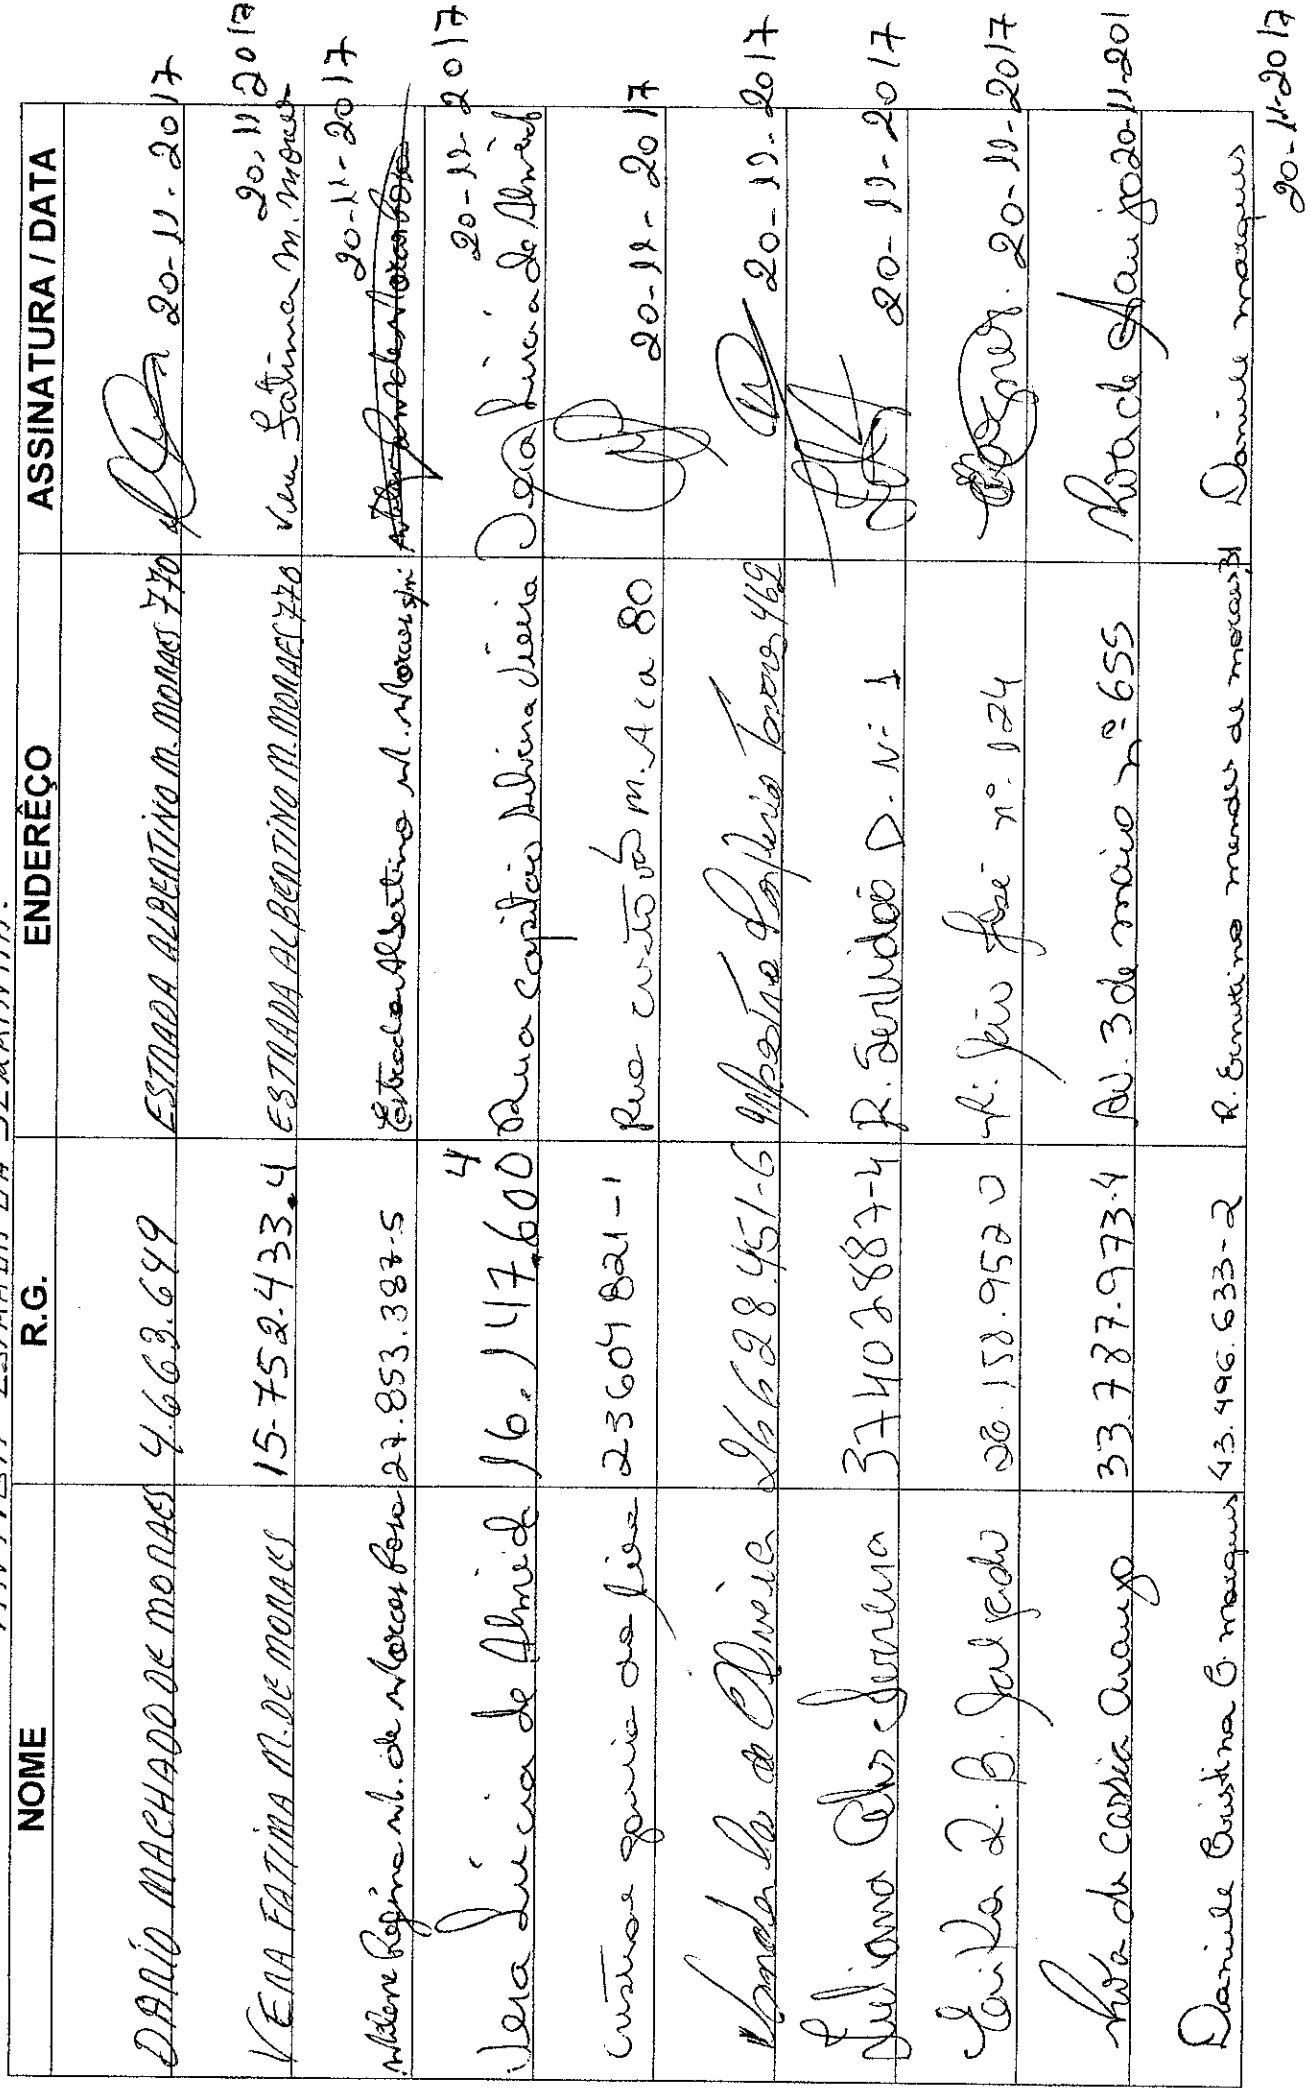 NOME R.G. ENDERÊÇO ASSINATURA / DATA
DARÍO MACHADO DE MORAES 4.663.649 ESTRADA ALBERTINO M. MORAES 770 20-11-2017
VERA FATIMA M. DE MORAES 15-752.433.4 ESTRADA ALBERTINO M. MORAES 770 20.11.2017
Vera Fatima M. Moraes
Regina de Moraes Rosa 27.853.387-5 Estrada Albertino M. Moraes s/n 20-11-2017
Vera Lúcia de Almeida 16.147.600 4 Rua Capitão Silvina Vieira 20-11-2017
Vera Lúcia de Almeida
23604821-1 Rua M. Aca 80 20-11-2017
de Oliveira 26628.451-6 Porfirio Tavares 469 20-11-2017
Juliana 37402887-4 R. Servidão D. N- 1 20-11-2017
R. B. Salgado 26.158.952 0 R: João José nº. 124 20-11-2017
Rita de Cassia Araujo 33.787.973-4 Av. 3 de maio nº 655 Rita de C Araujo 20-11-201
Daniele Cristina B. Marques 43.496.633-2 R. mendes de moraes 31 Daniele marques
20-11-2017